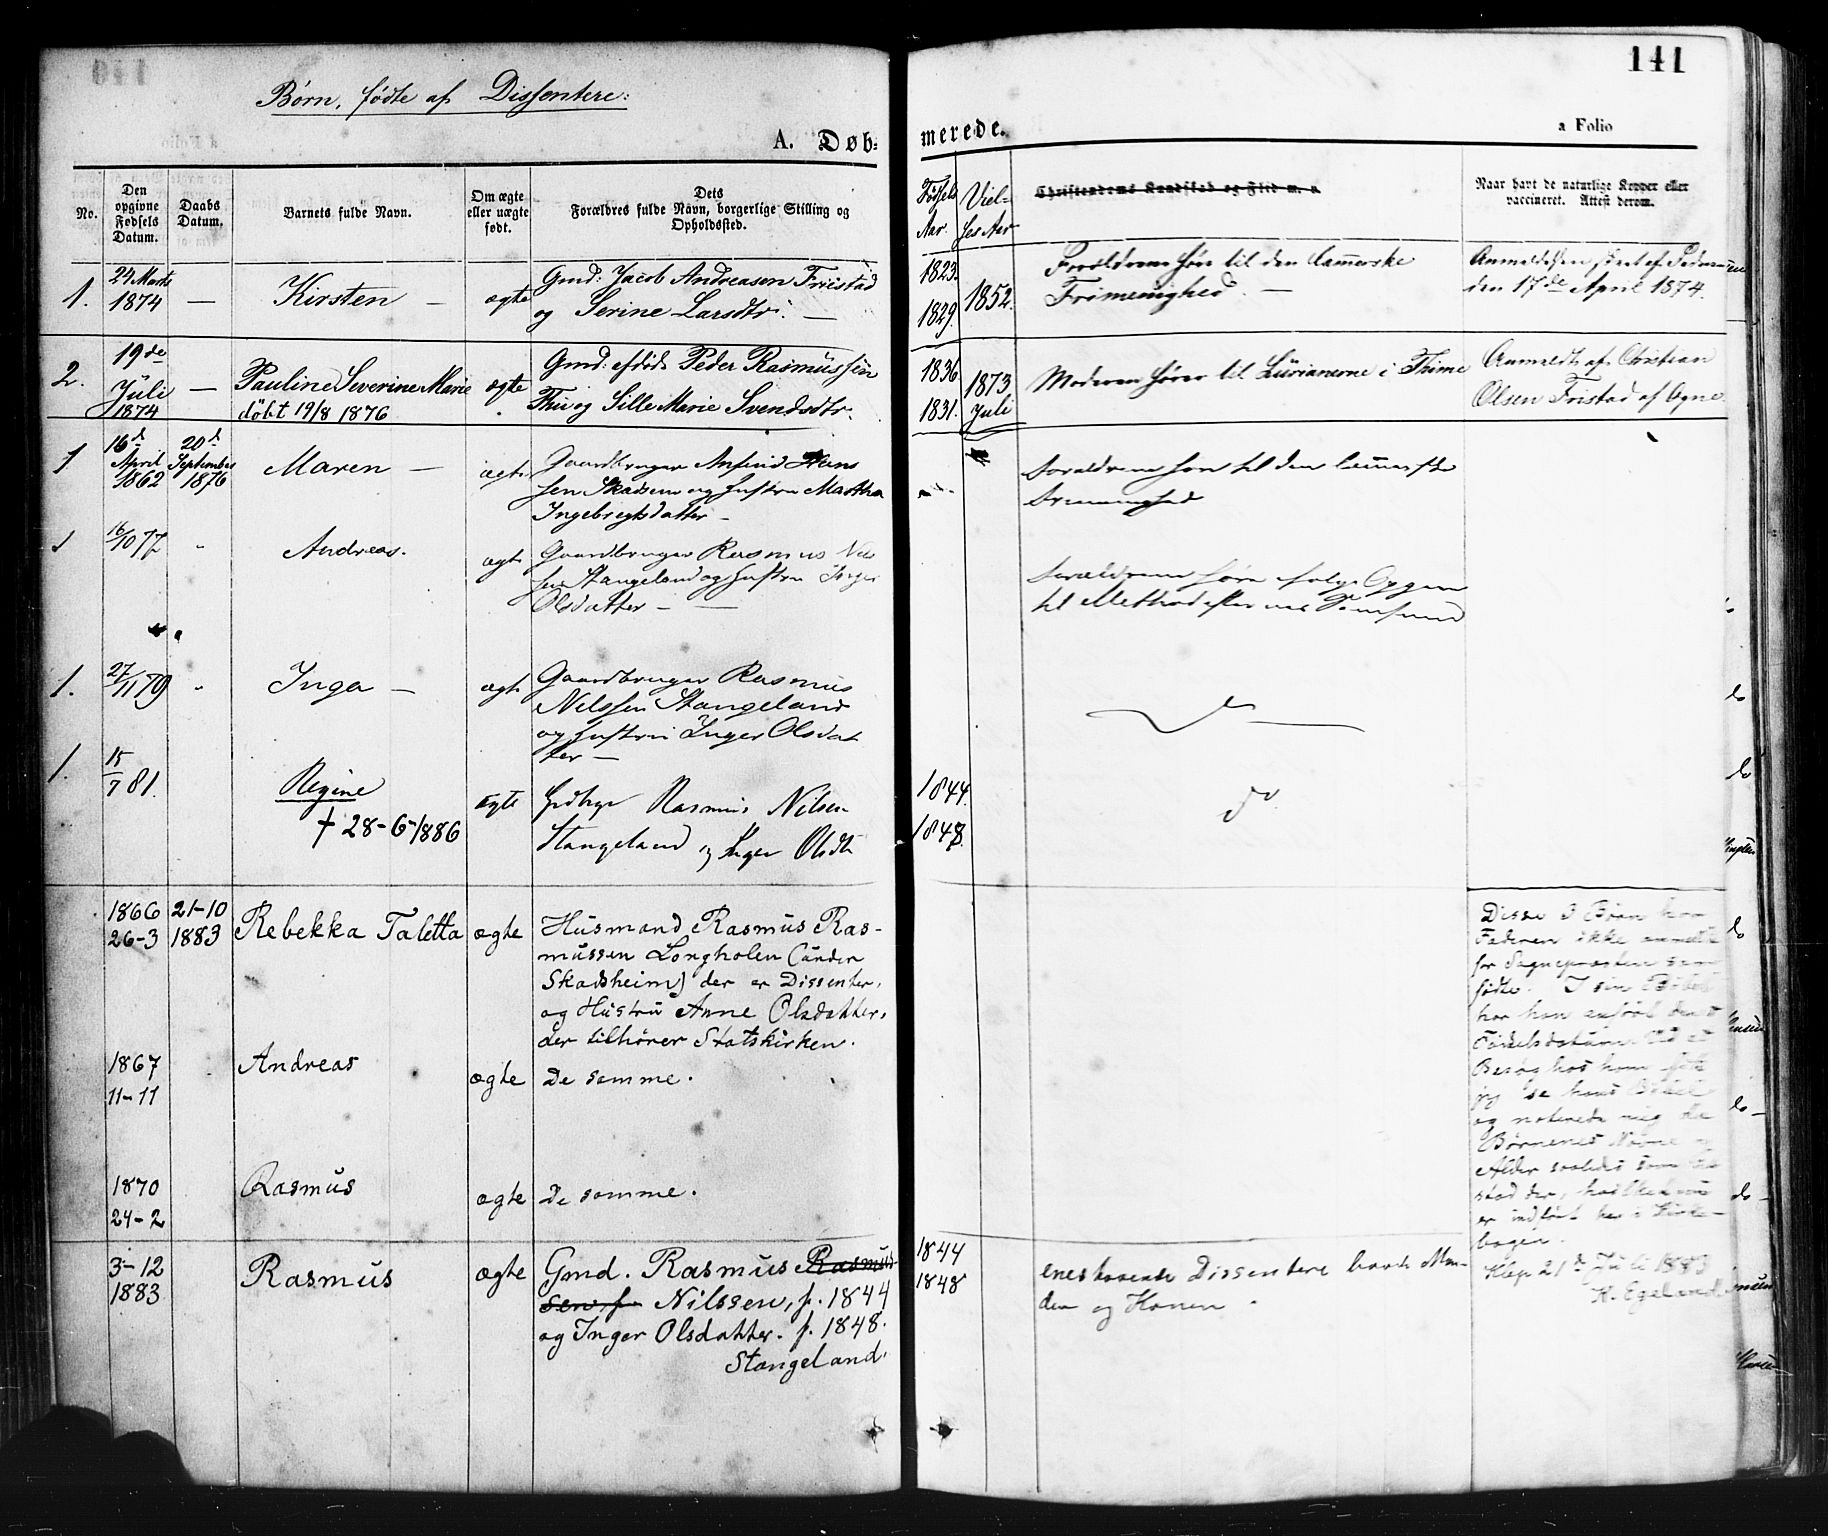 141
Børn, fødte af Dissentere:
A. Døb=
merede.
a Folio
No.
Den opgivne Fødsels Datum.
Daabs Datum.
Barnets fulde Navn.
Om ægte eller uægte født.
Dets Forældres fulde Navn, borgerlige Stilling og Opholdssted.
Fødsels Aar.
Vielses Aar
Christendoms Kundskab og Flid m. v.
Naar havt de naturlige Kopper eller vaccineret. Attest derom.
1.
24 Marts
1874
—
Kirsten —
ægte
Gmd: Jacob Andreasen Friestad
og Serine Larsdtr. —
1823.
1829.
1852.
Forældrene hører til den Lammerske
Frimenighed. —
Anmeldelsen skeet af
den 17de April 1874.
2.
19de
Juli
1874
—
Pauline Severine Marie
døbt 19/8 1876
ægte
Gmd: efdøde Peder Rasmussen
Thu og Sille Marie Svendsdtr.
1836
1831.
1873
Juli
Moderen hører til Lürianerne i Thime
Anmeldt af Christian
Olsen Fristad af Ogne.
1
16d
April
1862
20d
September
1876
Maren —
ægte
Gaardbruger Hans
sen Skadsem og Hustru Martha
Ingebregtsdatter —
Forældrene hører til den Lammerske
Frimenighed
1
16/10 77
"
Andreas.
ægte
Gaardbruger Rasmus Nils
sen Stangeland og Hustru Inger
Olsdatter —
Forældrene
til
1.
27/11 79
"
Inga —
ægte
Gaardbruger Rasmus
Nilssen Stangeland
og Hustru Inger Olsdat
ter —
1.
15/7 81.
Regine
† 28-6-1886
ægte
Rasmus Nilsen
Stangeland og Inger Olsdtr
1844.
1848.
do
1866
26-3
21-10
1883
Rebekka Taletta
ægte
Husmand Rasmus Ras-
mussen Longholen (under
Skadsheim) der er Dissenter,
og Hustru Anne Olsdatter,
der tilhører Statskirken.
Disse 3 Børn har
Faderen ikke anmeldt
for Sognepræsten som
fødte. I sin Bibel
har han anført deres
Fødselsdatum. Ved et
Besøg hos ham fik
jeg se hans Bibel
og noterede mig da
Børnenes Navne og
Alder saaledes som
stod der, hvilket nu
er indført her i Kirke-
bogen.
Klep 21de Juli 1883
K. Egeland.
1867
11-11
Andreas
ægte
De samme.
1870
24-2
Rasmus
ægte
De samme.
3-12
1883
Rasmus
ægte
Gmd. Rasmus Rasmus
sen, f. Nilssen, f. 1844
og Inger Olsdatter. f. 1848.
Stangeland.
1844
1848
Dissentere baade Man-
den og Konen.